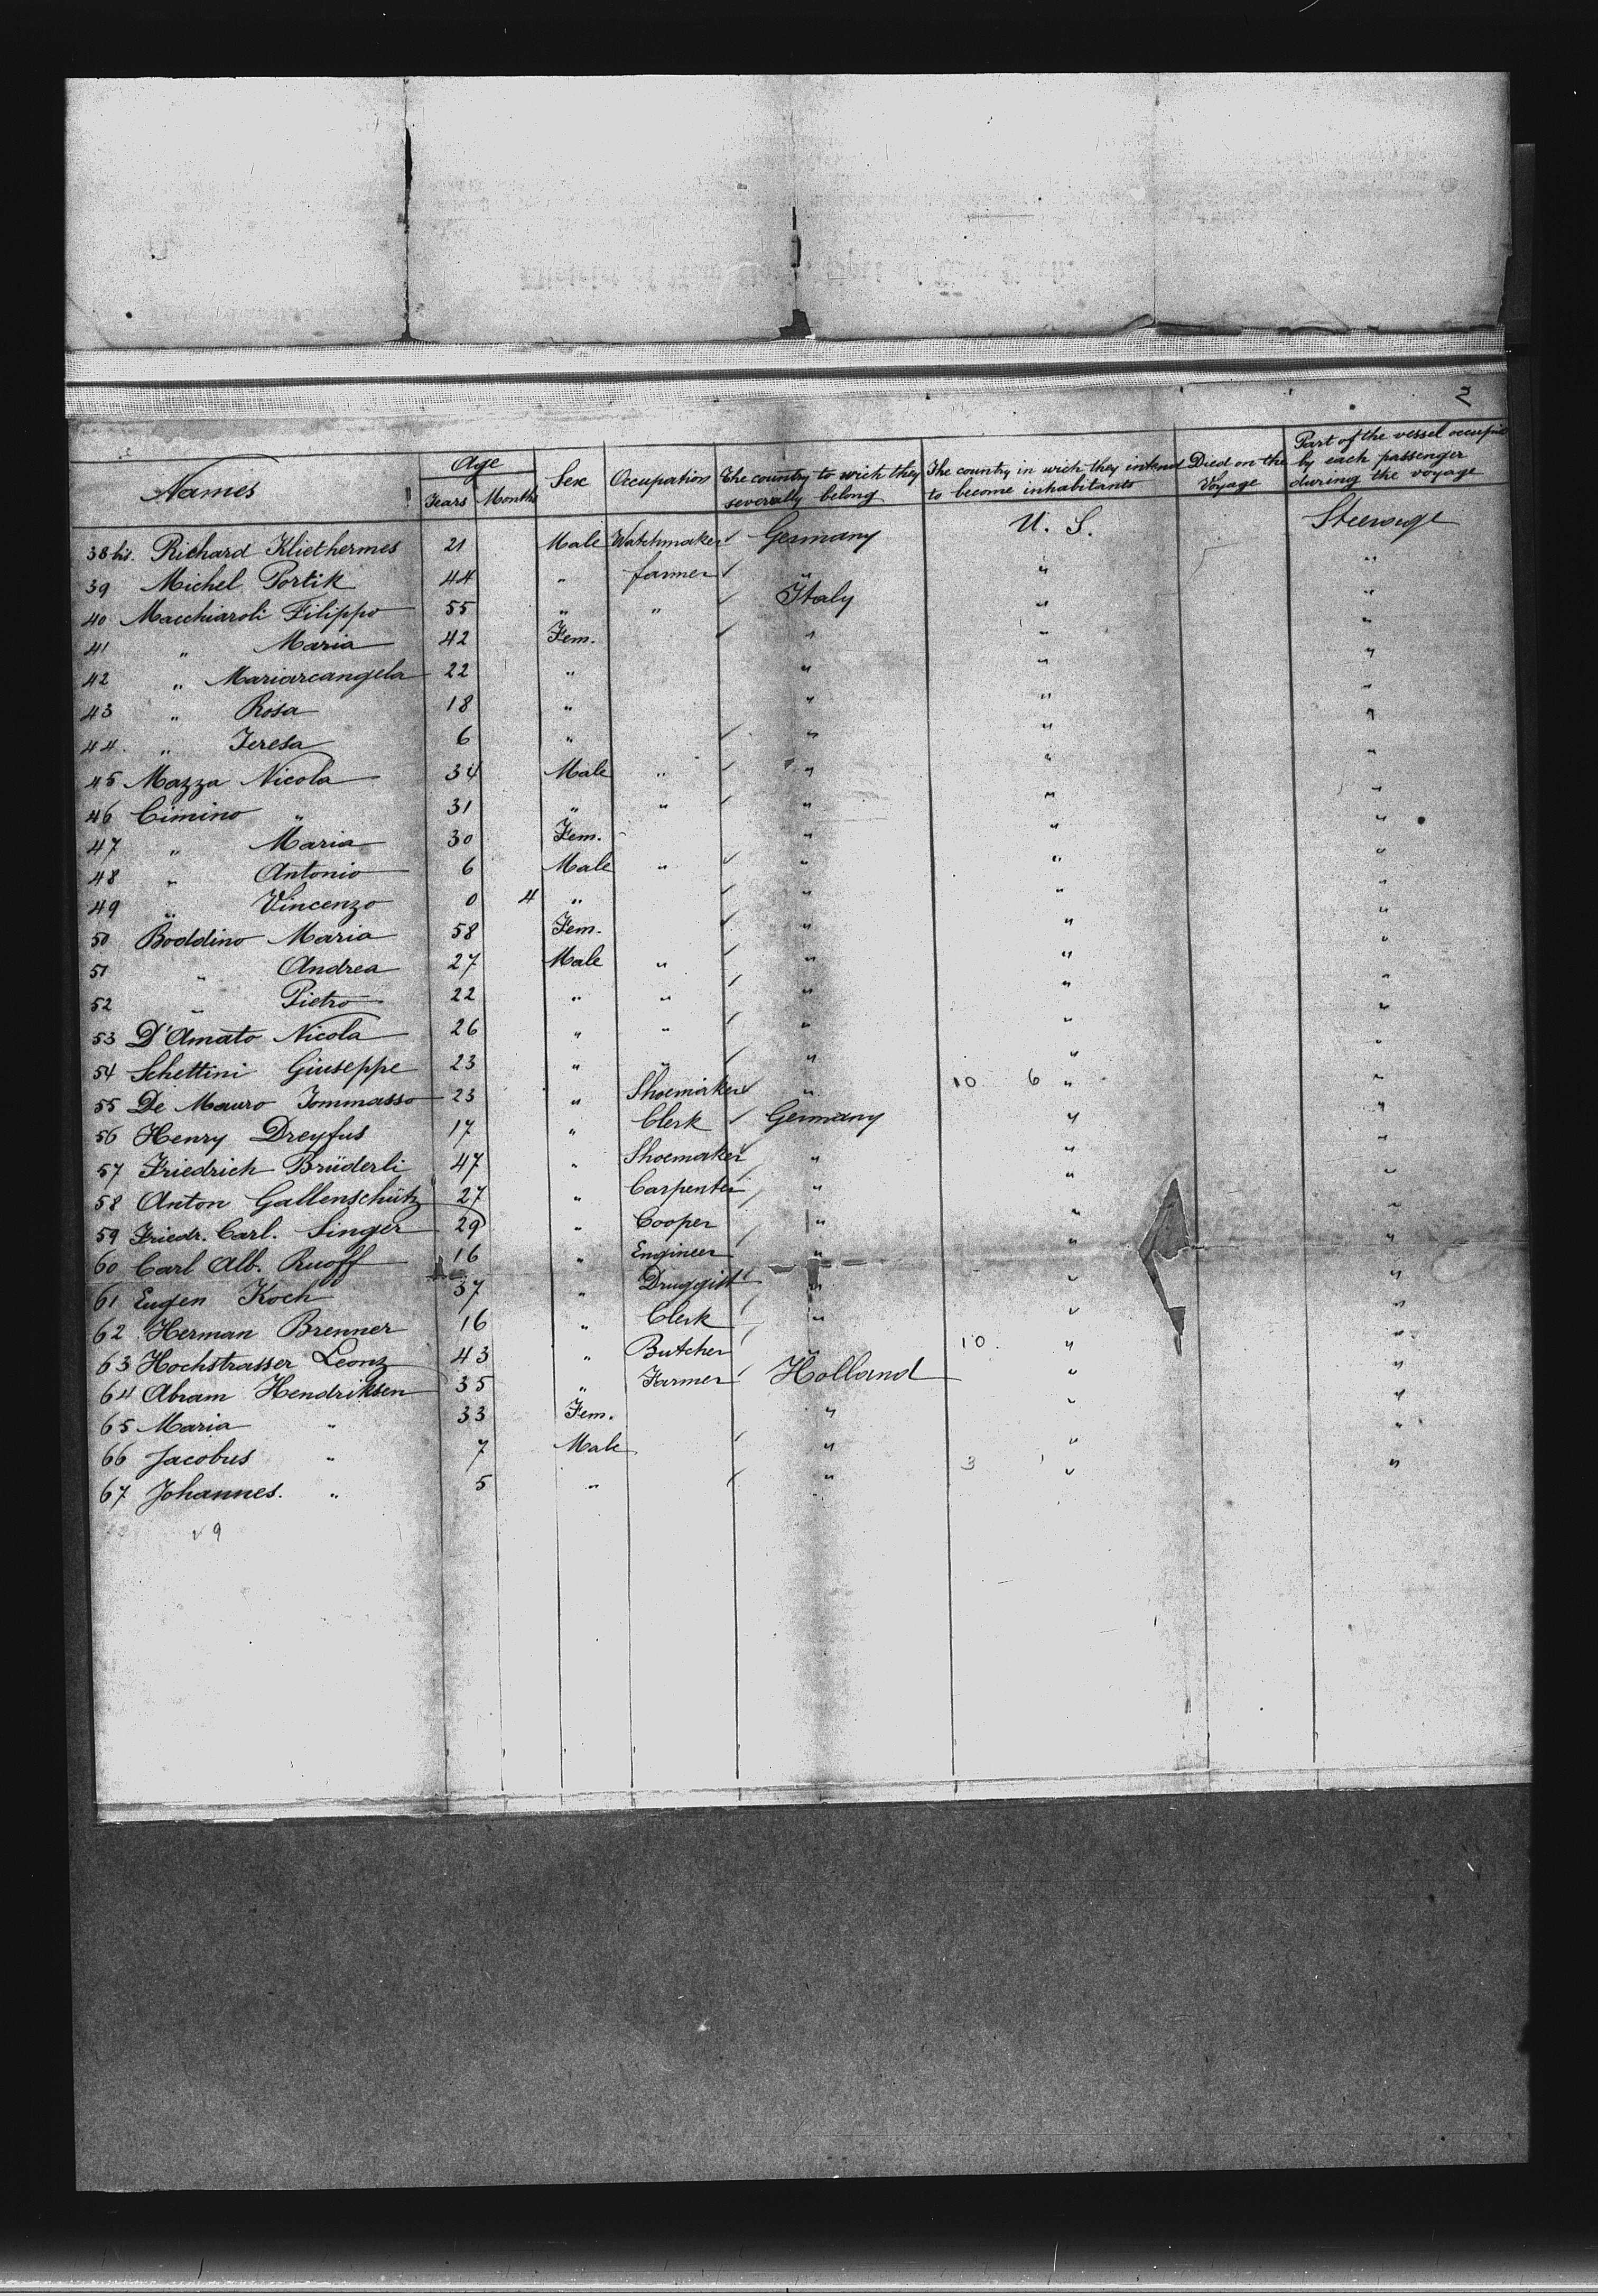 2
Names Age Sex Occupation The country to wich they severally belong The country in wich they intend to become inhabitants Died on the Voyage Part of the vessel occupied by each passenger during the voyage
Years Months
38 bis. Richard Kliethermes 21 Male Watchmaker Germany U. S. Steerage
39 Michel Portik 44 " farmer " " "
40 Macchiaroli Filippo 55 " " Italy " "
41 " Maria 42 Fem. " " "
42 " Mariarcangela 22 " " " "
43 " Rosa 18 " " " "
44. " Teresa 6 " " " "
45 Mazza Nicola 34 Male " " " "
46 Cimino " 31 " " " " "
47 " Maria 30 Fem. " " "
48 " Antonio 6 Male " " " "
49 " Vincenzo 0 4 " " " "
50 Boddino Maria 58 Fem. " " "
51 " Andrea 27 Male " " " "
52 " Pietro 22 " " " " "
53 D'Amato Nicola 26 " " " " "
54 Schettini Giuseppe 23 " " " " "
55 De Mauro Tommasso 23 " Shoemaker " 10 6 " "
56 Henry Dreyfus 17 " Clerk Germany " "
57 Friedrich Brüderli 47 " Shoemaker " " "
58 Anton Gallenschütz 27 " Carpenter " " "
59 Friedr. Carl. Singer 29 " Cooper " " "
60 Carl Alb. Ruoff 16 " Engineer " " "
61 Eugen Koch 37 " Druggist " " "
62 Herman Brenner 16 " Clerk " " "
63 Hochstrasser Leonz 43 " Butcher " 10. " "
64 Abram Hendriksen 35 " Farmer Holland " "
65 Maria " 33 Fem. " " "
66 Jacobus " 7 Male " " "
67 Johannes. " 5 " " 3 1 " "
9